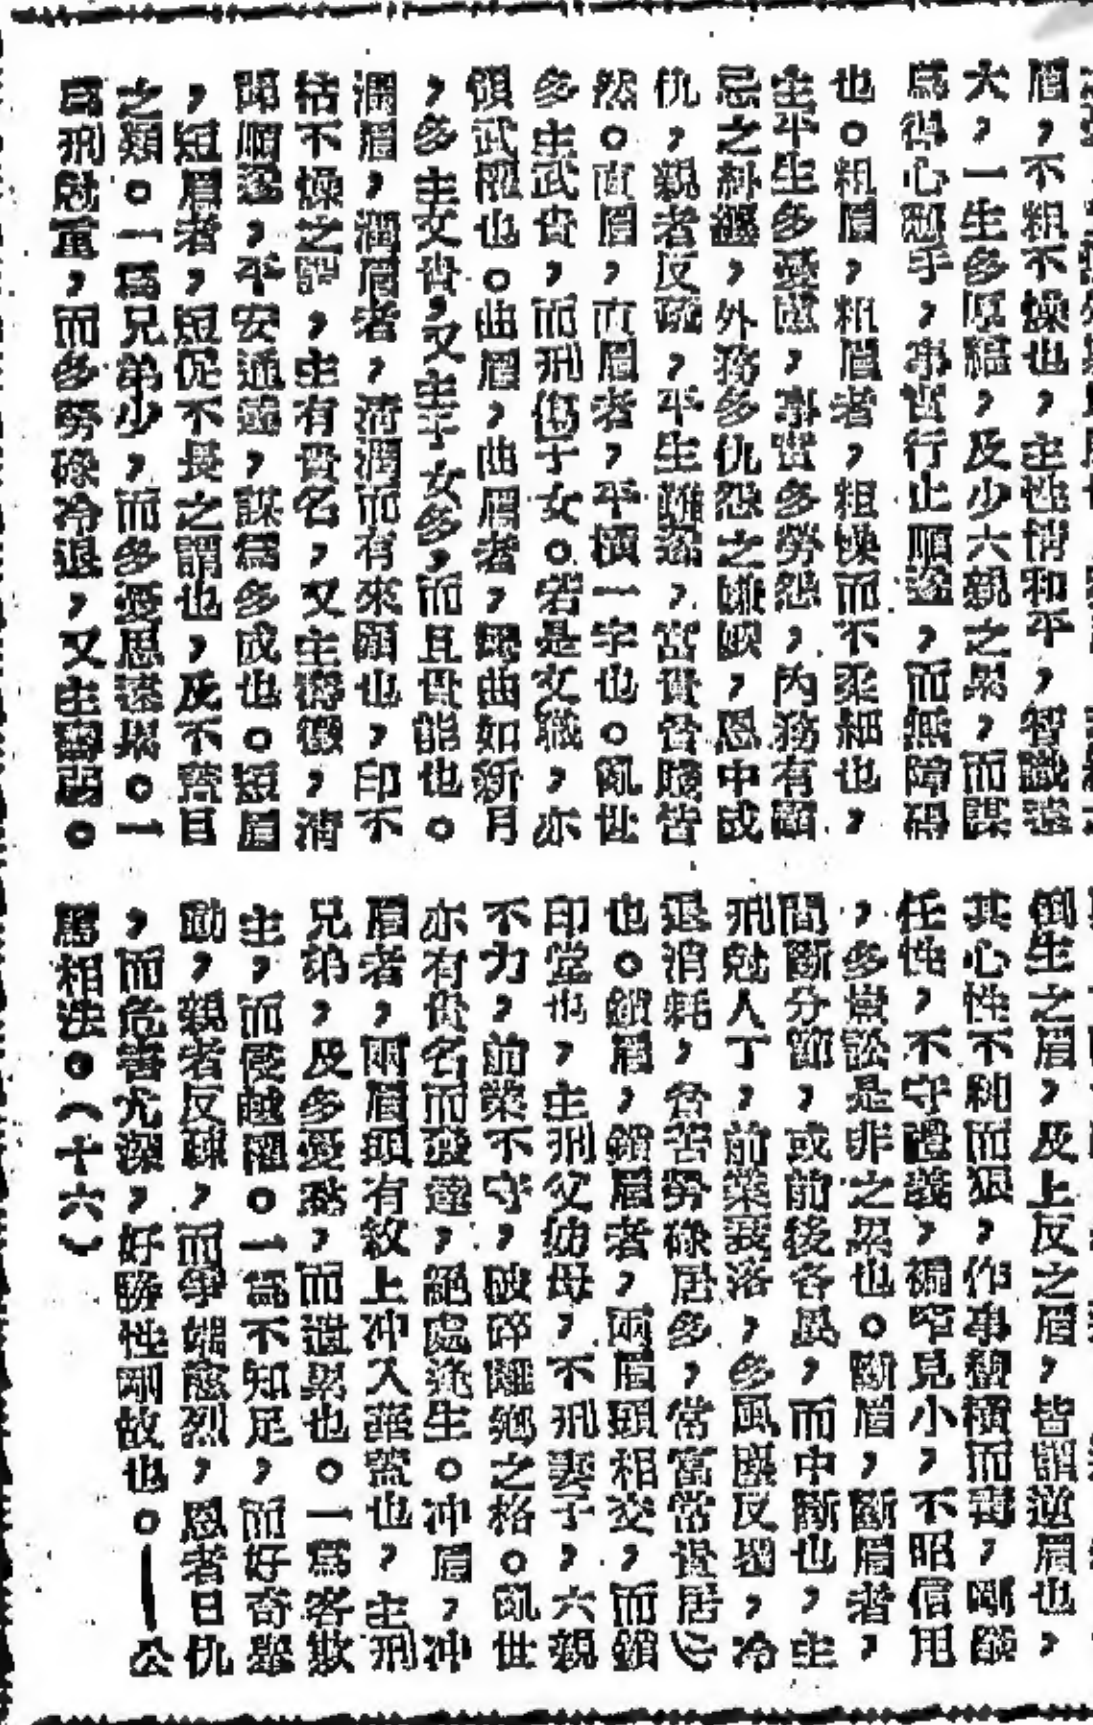 眉，不粗不燥也，主性情和平，智識遠
大，一生多厚福，及少六親之累，而謀
爲得心應手，事實行止順遂，而無障碍
也。粗眉，粗眉者，粗燥而不柔細也，
主平生多憂慮，事實多勞怨，內務有顧
忌之糾纏，外務多仇怨之嫌，恩中成
仇，親者反疏，平生難遂，富貴貧賤皆
然。直眉，直眉者，平橫一字也。亂世
多主武貴，而刑傷子女。若是文職，亦
領武權也。曲眉，曲眉者，彎曲如新月
，多主女貴，又主子女多，而且貴能也。
潤眉，潤眉者，清潤而有來顧也，印不
枯不燥之謂，主有貴名，又主壽徵，清
閒順遂，平安通達，謀爲多成也。短眉
，短眉者，短促不長之謂也，及不蓋目
之類。一爲兄弟少，而多憂思遠累。一
爲刑尅重，而多勞碌冷退，又主弱。
倒生之眉，及上反之眉，皆謂逆眉也，
其心性不和而狠，作事橫而毒，剛
任性，不守禮義，褊窄見小，不昭信用
，多訟是非之累也。斷眉，斷眉者，
間斷分節，或前後各異，而中斷也，主
刑尅人丁，前業衰落，多風塵反，冷
退消耗，苦勞碌居多，常富常貴居心
也。鎖眉，鎖眉者，兩眉頭相交，而鎖
印堂也，主刑父妨母，不刑妻子，六親
不力，前業不守，破碎離鄉之格。亂世
亦有貴名而發達，絕處逢生。冲眉，冲
眉者，兩眉頭有紋上冲入華蓋也，主刑
兄弟，及多憂愁，而遭累也。一爲客欺
主，而侵越權。一爲不知足，而好奇舉
動，親者反疎，而爭端愈烈，恩者日仇
，而危害尤深，好勝性剛故也。——公
篤相法。（十六）